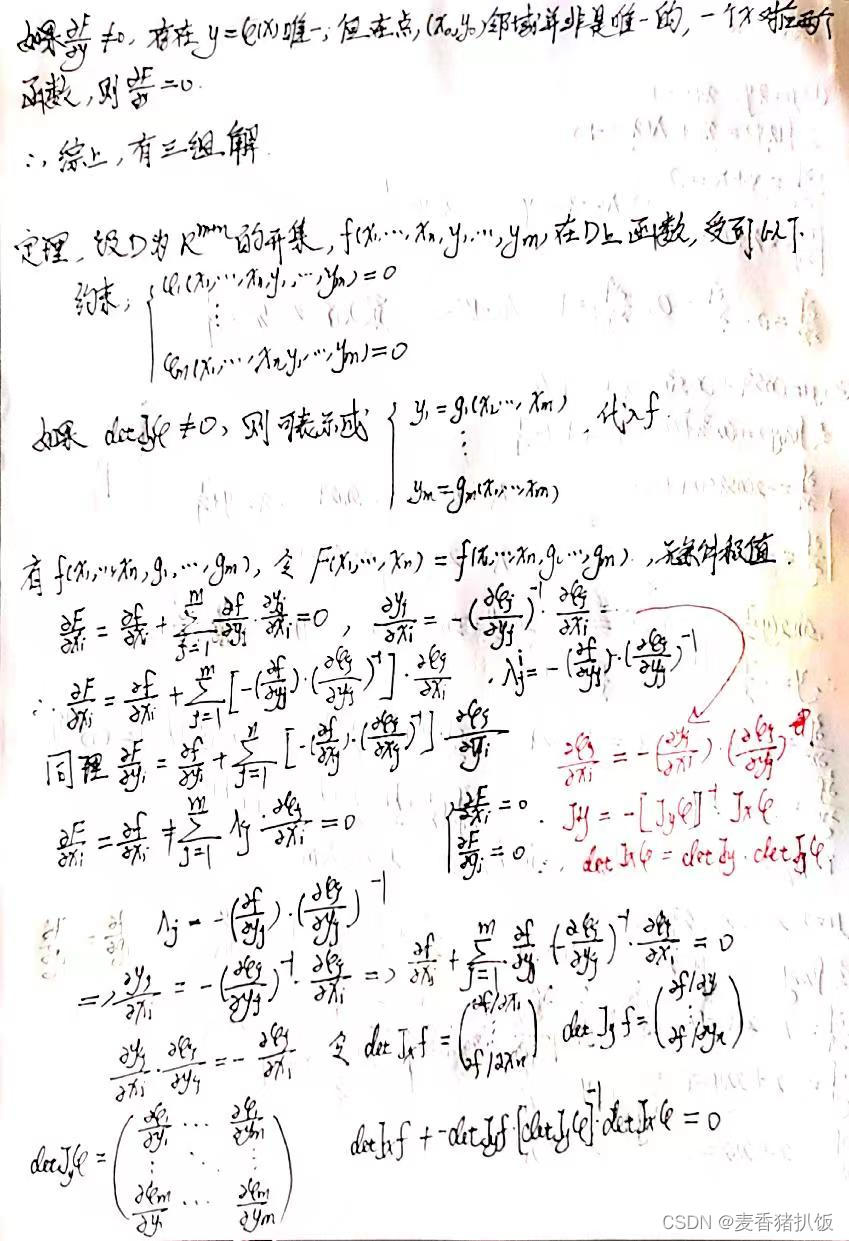 如果 ∂F/∂y ≠0, 存在 y=φ(x)唯一, 但在点, (x₀,y₀)邻域并非是唯一的, 一个x对应两个
函数, 则 ∂F/∂y =0.
∴, 综上, 有三组解.
定理, 设D为R^{m+n}的开集, f(x₁,…,xₙ,y₁,…,yₘ)在D上函数, 受到以下
约束, { φ₁(x₁,…,xₙ,y₁,…,yₘ)=0
⋮
φₘ(x₁,…,xₙ,y₁,…,yₘ)=0
如果 detJyφ ≠0, 则可表示成 { y₁=g₁(x₁,…,xₘ) , 代入f.
⋮
yₘ=gₘ(x₁,…,xₘ)
有 f(x₁,…,xₙ,g₁,…,gₘ), 令 F(x₁,…,xₙ) = f(x₁,…,xₙ,g₁,…,gₘ). , 无条件极值.
∂F/∂xᵢ = ∂f/∂xᵢ + Σ_{j=1}^{m} ∂f/∂yⱼ · ∂yⱼ/∂xᵢ =0 , ∂yⱼ/∂xᵢ = -(∂φⱼ/∂yⱼ)⁻¹ · ∂φⱼ/∂xᵢ
∴ ∂F/∂xᵢ = ∂f/∂xᵢ + Σ_{j=1}^{m} [-(∂f/∂yⱼ)·(∂φⱼ/∂yⱼ)⁻¹] · ∂φⱼ/∂xᵢ . λⱼ = -(∂f/∂yⱼ)·(∂φⱼ/∂yⱼ)⁻¹
同理 ∂F/∂yᵢ = ∂f/∂yᵢ + Σ_{j=1}^{n} [-(∂f/∂xⱼ)·(∂φⱼ/∂xⱼ)⁻¹] · ∂φⱼ/∂yᵢ
∂φⱼ/∂xᵢ = -(∂yⱼ/∂xᵢ)·(∂φⱼ/∂yⱼ)
∂F/∂xᵢ = ∂f/∂xᵢ + Σ_{j=1}^{m} λⱼ · ∂φⱼ/∂xᵢ =0 { ∂F/∂xᵢ =0 . Jy = -[Jyφ]⁻¹ Jxφ
∂F/∂yᵢ =0 ∴ detJxφ = detJy · detJyφ
λⱼ = -(∂f/∂yⱼ)·(∂φⱼ/∂yⱼ)⁻¹
=> ∂yⱼ/∂xᵢ = -(∂φⱼ/∂yⱼ)⁻¹ · ∂φⱼ/∂xᵢ => ∂f/∂xᵢ + Σ_{j=1}^{m} ∂f/∂yⱼ (-∂φⱼ/∂yⱼ)⁻¹ · ∂φⱼ/∂xᵢ =0
∂yⱼ/∂xᵢ · ∂φⱼ/∂yⱼ = - ∂φⱼ/∂xᵢ 令 detJxf = (∂f/∂x₁ ⋮ ∂f/∂xₙ) . detJyf = (∂f/∂y ⋮ ∂f/∂yₙ)
detJyφ = (∂φ₁/∂y₁ … ∂φ₁/∂yₘ ⋮ ⋱ ⋮ ∂φₘ/∂y₁ … ∂φₘ/∂yₘ) detJxf + -detJyf·[detJyφ]⁻¹·detJxφ =0
CSDN @麦香猪扒饭